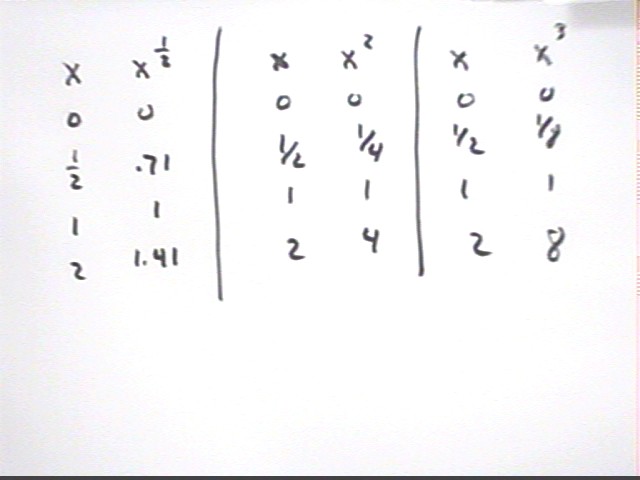 x x^½ | x x² | x x³
0 0 | 0 0 | 0 0
½ .71 | 1/2 1/4 | 1/2 1/8
1 1 | 1 1 | 1 1
2 1.41 | 2 4 | 2 8